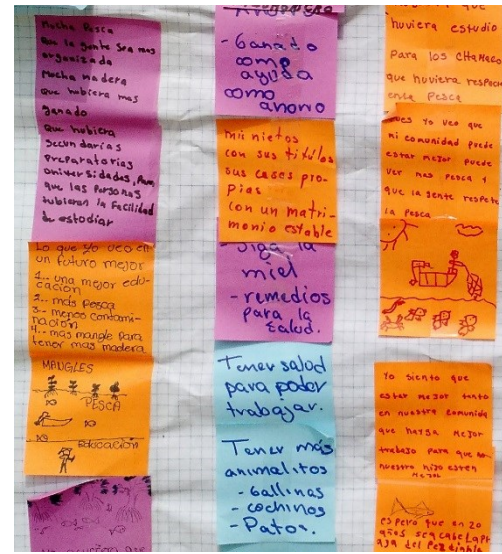 Mucha Pesca
Que la gente sea mas
organizada
Mucha madera
Que hubiera mas
ganado
Que hubiera
Secundarias
Preparatorias
universidades, Para
que las Personas
tubieran la Facilidad
de estudiar
Lo que yo veo en
un futuro mejor
1.- una mejor edu-
cación
2.- más pesca
3.- menos contami-
nación
4.- mas mangle para
tener mas madera
MANGLES
PESCA
Educación
- Ganado
como
ayuda
como
abono
mis nietos
con sus titulos
sus casas pro-
pias
con un matri-
monio estable
- Siga la
miel
- remedios
para la
salud.
Tener salud
para poder
trabajar.
Tener más
animalitos
- Gallinas
- Cochinos
- Patos.
huviera estudio
Para los CHAMACO
que huviera respeto
en la Pesca
Pues Yo veo que
mi comunidad puede
estar mejor puede
ver mas pesca y
que la gente respete
la pesca
Yo siento que
estar mejor tanto
en nuestra comunida
que hayga mejor
trabajo para que
nuestro hijo esten
mejor
espero que en 20
años